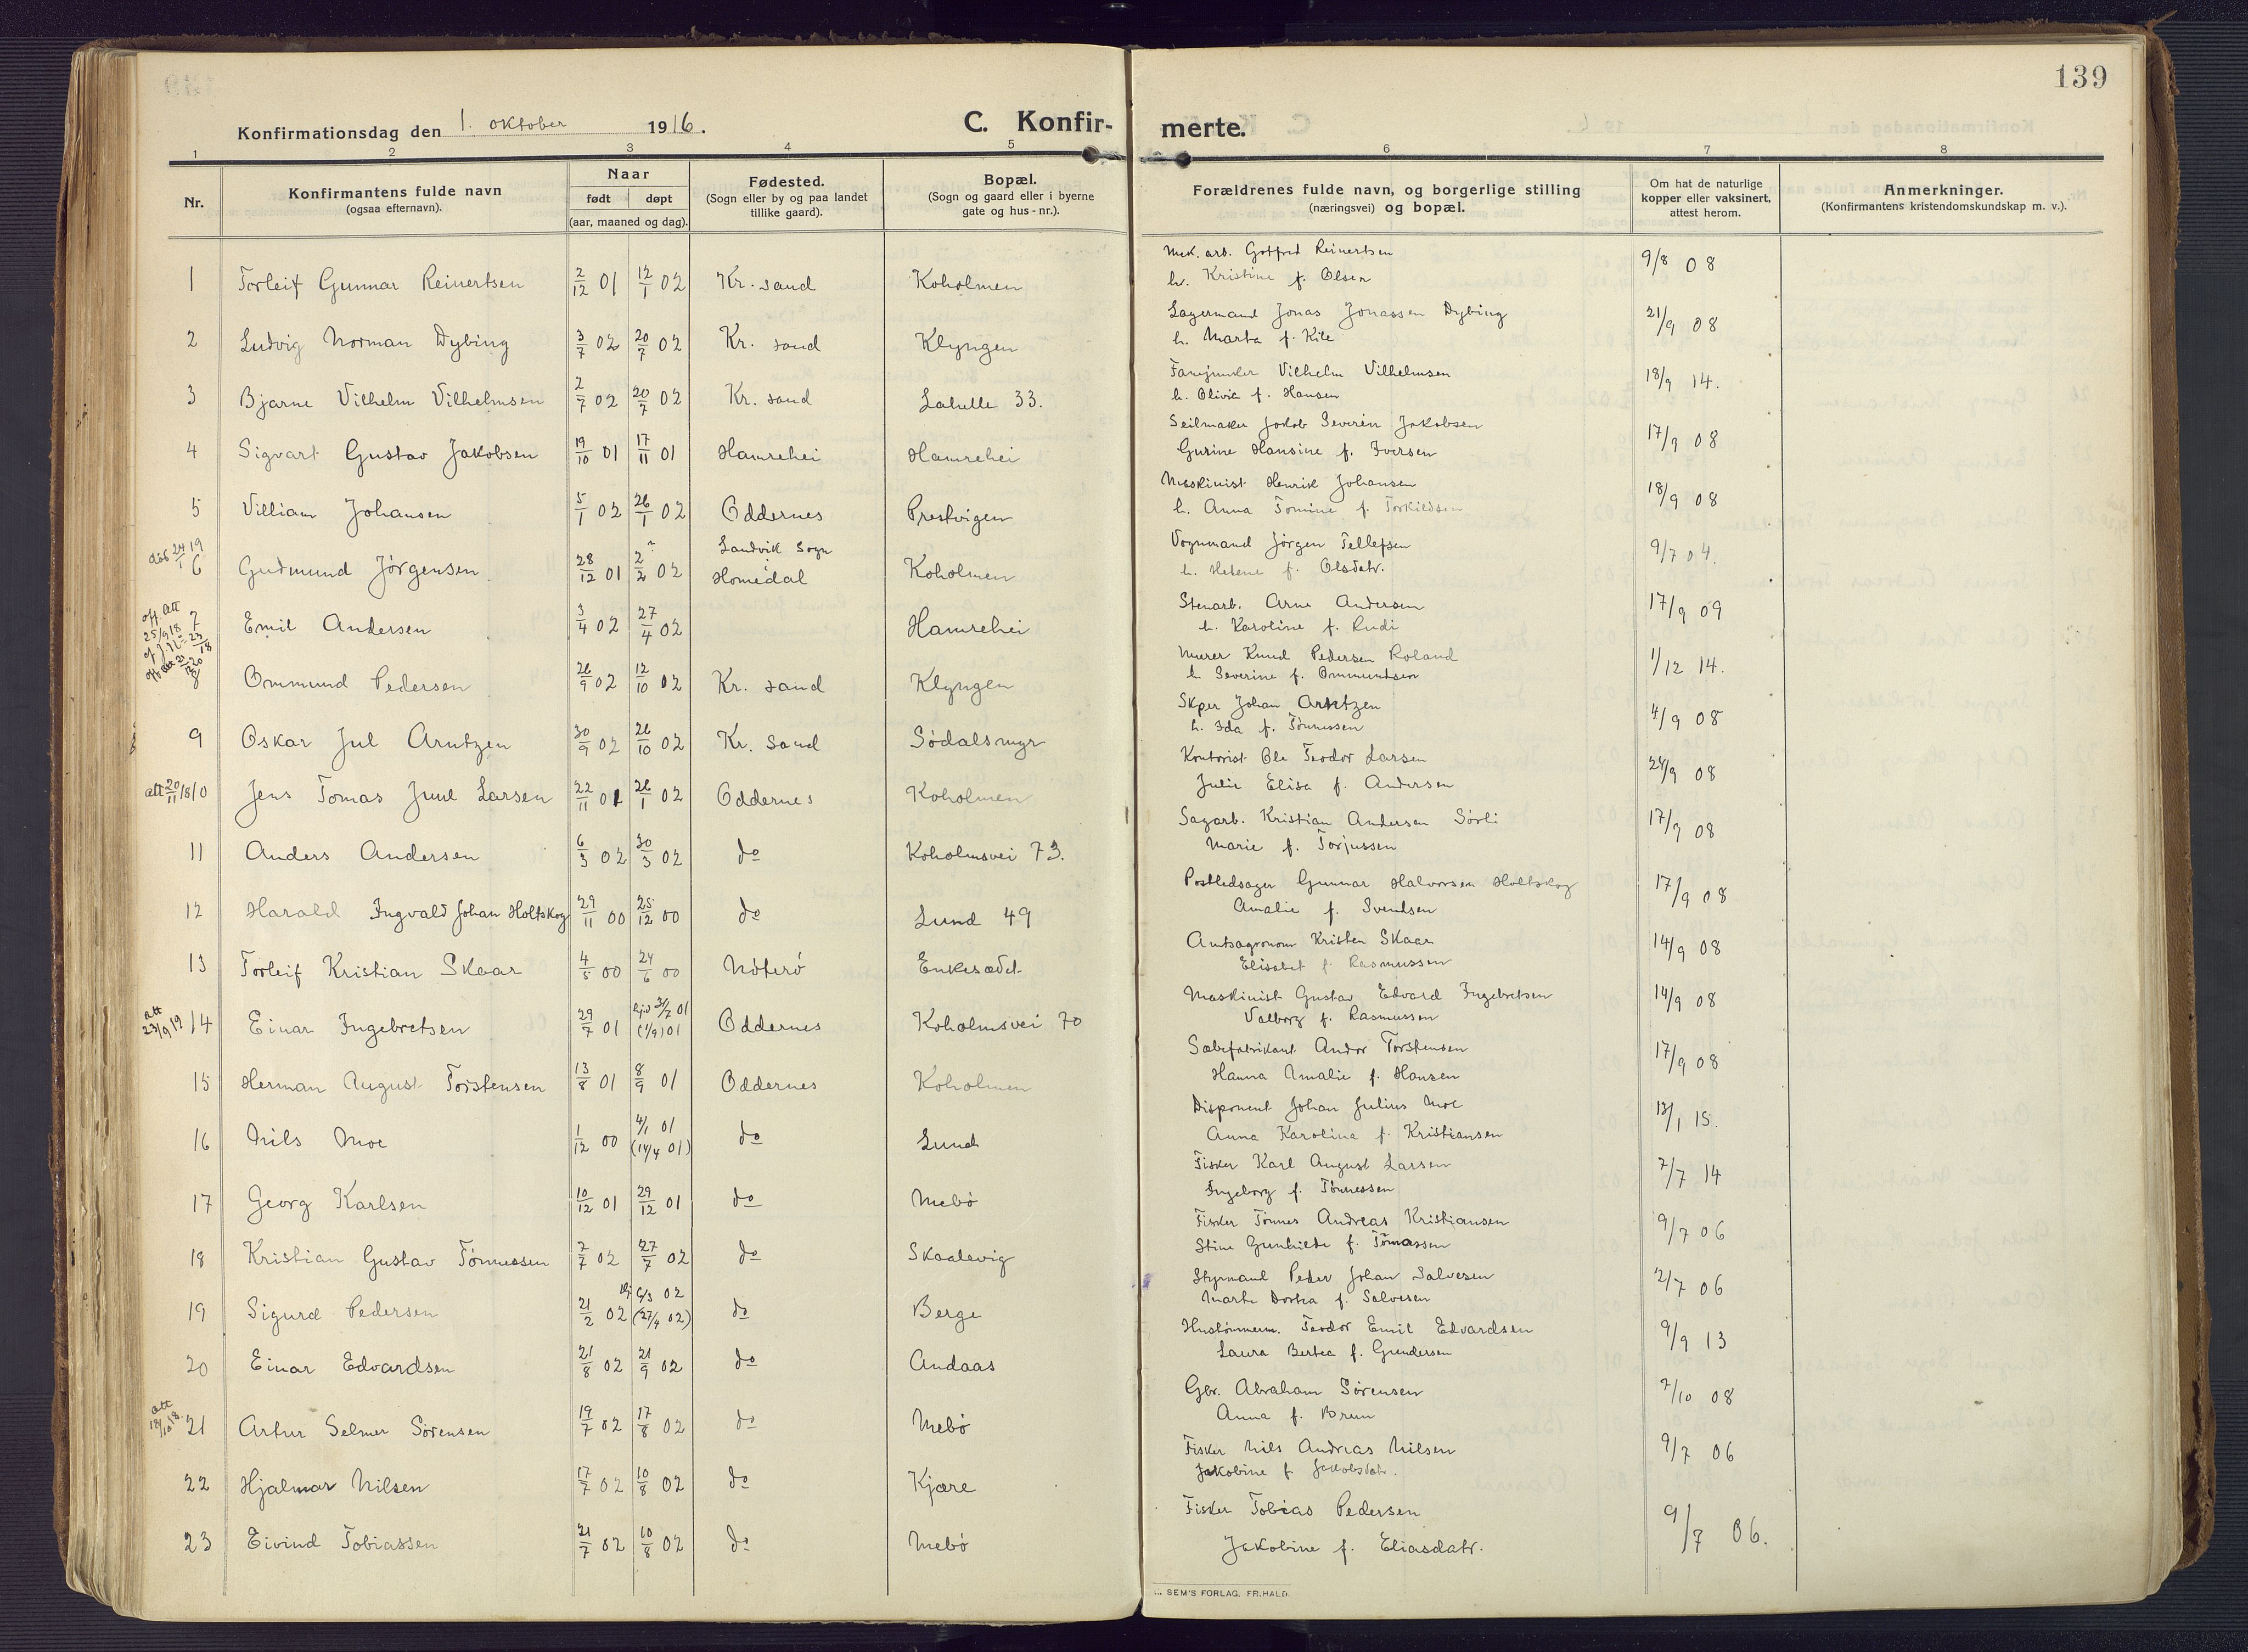 139
Konfirmationsdag den 1. oktober 1916.
C. Konfir-merte.
1 2 3 4 5 6 7 8
Nr.
Konfirmantens fulde navn
(ogsaa efternavn).
Naar
født døpt
(aar, maaned og dag).
Fødested.
(Sogn eller by og paa landet
tillike gaard).
Bopæl.
(Sogn og gaard eller i byerne
gate og hus-nr.).
Forældrenes fulde navn, og borgerlige stilling
(næringsvei) og bopæl.
Om hat de naturlige
kopper eller vaksinert,
attest herom.
Anmerkninger.
(Konfirmantens kristendomskundskap m. v.).
1 Torleif Gunnar Reinertsen 2/12 01 12/1 02 Kr. sand Koholmen Mek. arb. Gotfred Reinertsen 9/8 08
h. Kristine f. Olsen
2 Ludvig Norman Dybing 3/7 02 20/7 02 Kr. sand Klyngen Lagermand Jonas Jonassen Dybing 21/9 08
h. Marta f. Kile
3 Bjarne Vilhelm Vilhelmsen 2/7 02 20/7 02 Kr. sand Lahelle 33. Fanejunker Vilhelm Vilhelmsen 18/9 14.
h. Olivia f. Hansen
4 Sigvart Gustav Jakobsen 19/10 01 17/11 01 Hamrehei Hamrehei Seilmaker Jakob Severin Jakobsen 17/9 08
Gurine Hansine f. Iversen
5 Villiam Johansen 5/1 02 26/1 02 Oddernes Prestvigen Maskinist Henrik Johansen 18/9 08
h. Anna Tomine f. Torkildsen
6 Gudmund Jørgensen 28/12 01 2/2 02 ? Landvik Sogn
Homedal Koholmen Vognmand Jørgen Tellefsen 9/7 04.
h. Helene f. Olsdatr.
off. att
25/9 18
7 Emil Andersen 3/4 02 27/4 02 Hamrehei Stenarb. Arne Andersen 17/9 09
h. Karoline f. Rudi
8 Ommund Pedersen 26/9 02 12/10 02 Kr. sand Klyngen Murer Knud Pedersen Roland 1/12 14.
h. Severine f. Ommundsen
9 Oskar Jul Arntzen 30/9 02 26/10 02 Kr. Sand Sødalsmyr Skper Johan Arntzen 4/9 08
h. Ida f. Tønnessen
att 20/11 18 10 Jens Tomas Juul Larsen 22/11 01 26/1 02 Oddernes Koholmen Kontorist Ole Teodor Larsen 24/9 08
Julie Elisa f. Andersen
11 Anders Andersen 6/3 02 30/3 02 do Koholmsvei 73. Sagarb. Kristian Andersen Sørli 17/9 08
Marie f. Torjussen
12 Harald Ingvald Johan Holtskog 29/11 00 25/12 00 do Lund 49 Postledsager Gunnar Halvorsen Holtskog 17/9 08
Amalie f. Svendsen
13 Torleif Kristian Skaar 4/5 00 24/6 00 Nøterø Enkesædet Amtsagronom Kristen Skaar 14/9 08
Elisabet f. Rasmussen
att
23/9 19 14 Einar Ingebretsen 29/7 01 hjd 31/7 01
(1/9) 01 Oddernes Koholmsvei 70 Maskinist Gustav Edvard Ingebretsen 14/9 08
Valborg f. Rasmussen
15 Herman August Torstensen 13/8 01 8/9 01 Oddernes Koholmen Sæbefabrikant Andor Torstensen 17/9 08
Hanna Amalie f. Hansen
16 Nils Moe 1/12 00 4/1 01
(14/4 01) do Lund Disponent Johan Julius Moe 13/1 15.
Anna Karolina f. Kristiansen
17 Georg Karlsen 10/12 01 29/12 01 do Mebø Fisker Karl August Larsen 7/7 14
Ingeborg f. Tønnessen
18 Kristian Gustav Tønnessen 7/7 02 27/7 02 do Skaalevig Fisker Tønnes Andreas Kristiansen 9/7 06
Stine Gunhilde f. Tomassen
19 Sigurd Pedersen 21/2 02 hj 6/3 02
(27/4 02) do Berge Styrmand Peder Johan Salvesen 2/7 06
Marte Dortea f. Salvesen
20 Einar Edvardsen 21/8 02 21/9 02 do Andaas Hustømmerm. Teodor Emil Edvardsen 9/9 13
Laura Bertea f. Gundersen
att
18/10 18. 21 Artur Selmer Sørensen 19/7 02 17/8 02 do Mebø Gbr. Abraham Sørensen 7/10 08
Anna f. Bruun
22 Hjalmar Nilsen 17/7 02 10/8 02 do Kjære Fisker Nils Andreas Nilsen 9/7 06
Jakobine f. Jakobsdatr.
23 Eivind Tobiassen 21/7 02 10/8 02 do Mebø Fisker Tobias Pedersen 9/7 06.
Jakobine f. Eliasdatr.
SEM'S FORLAG, FR.HALD